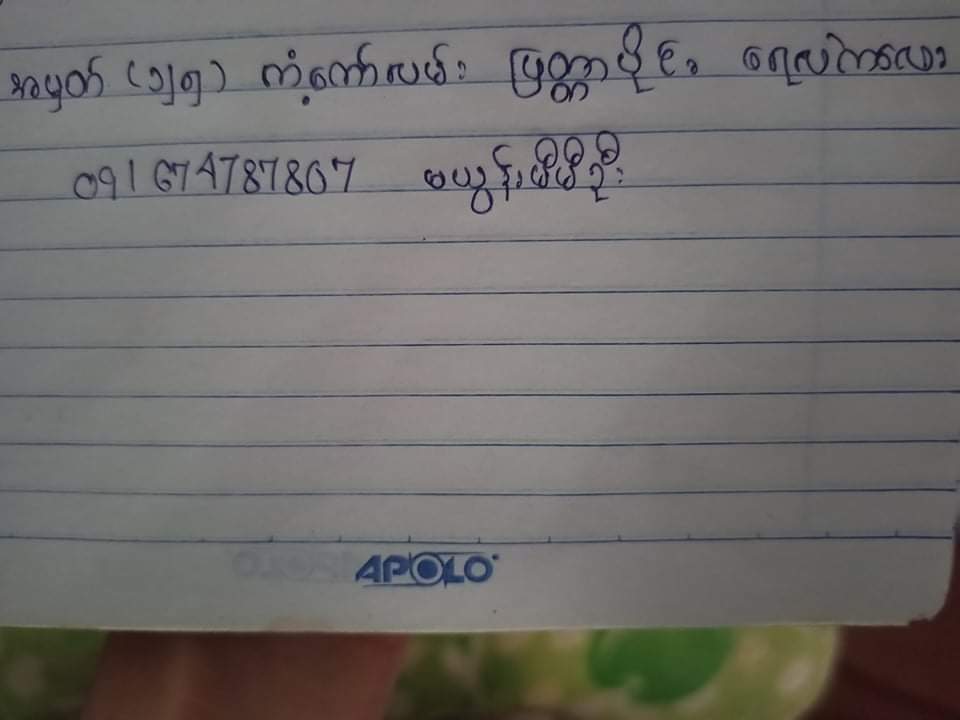 အမှတ် (၁၂၅) ကံ့ကော်လမ်း မြတ္တာပိုင်း ရေလဲကလေး
091 674787807 မယွန်းမီမီဦး
APOLO